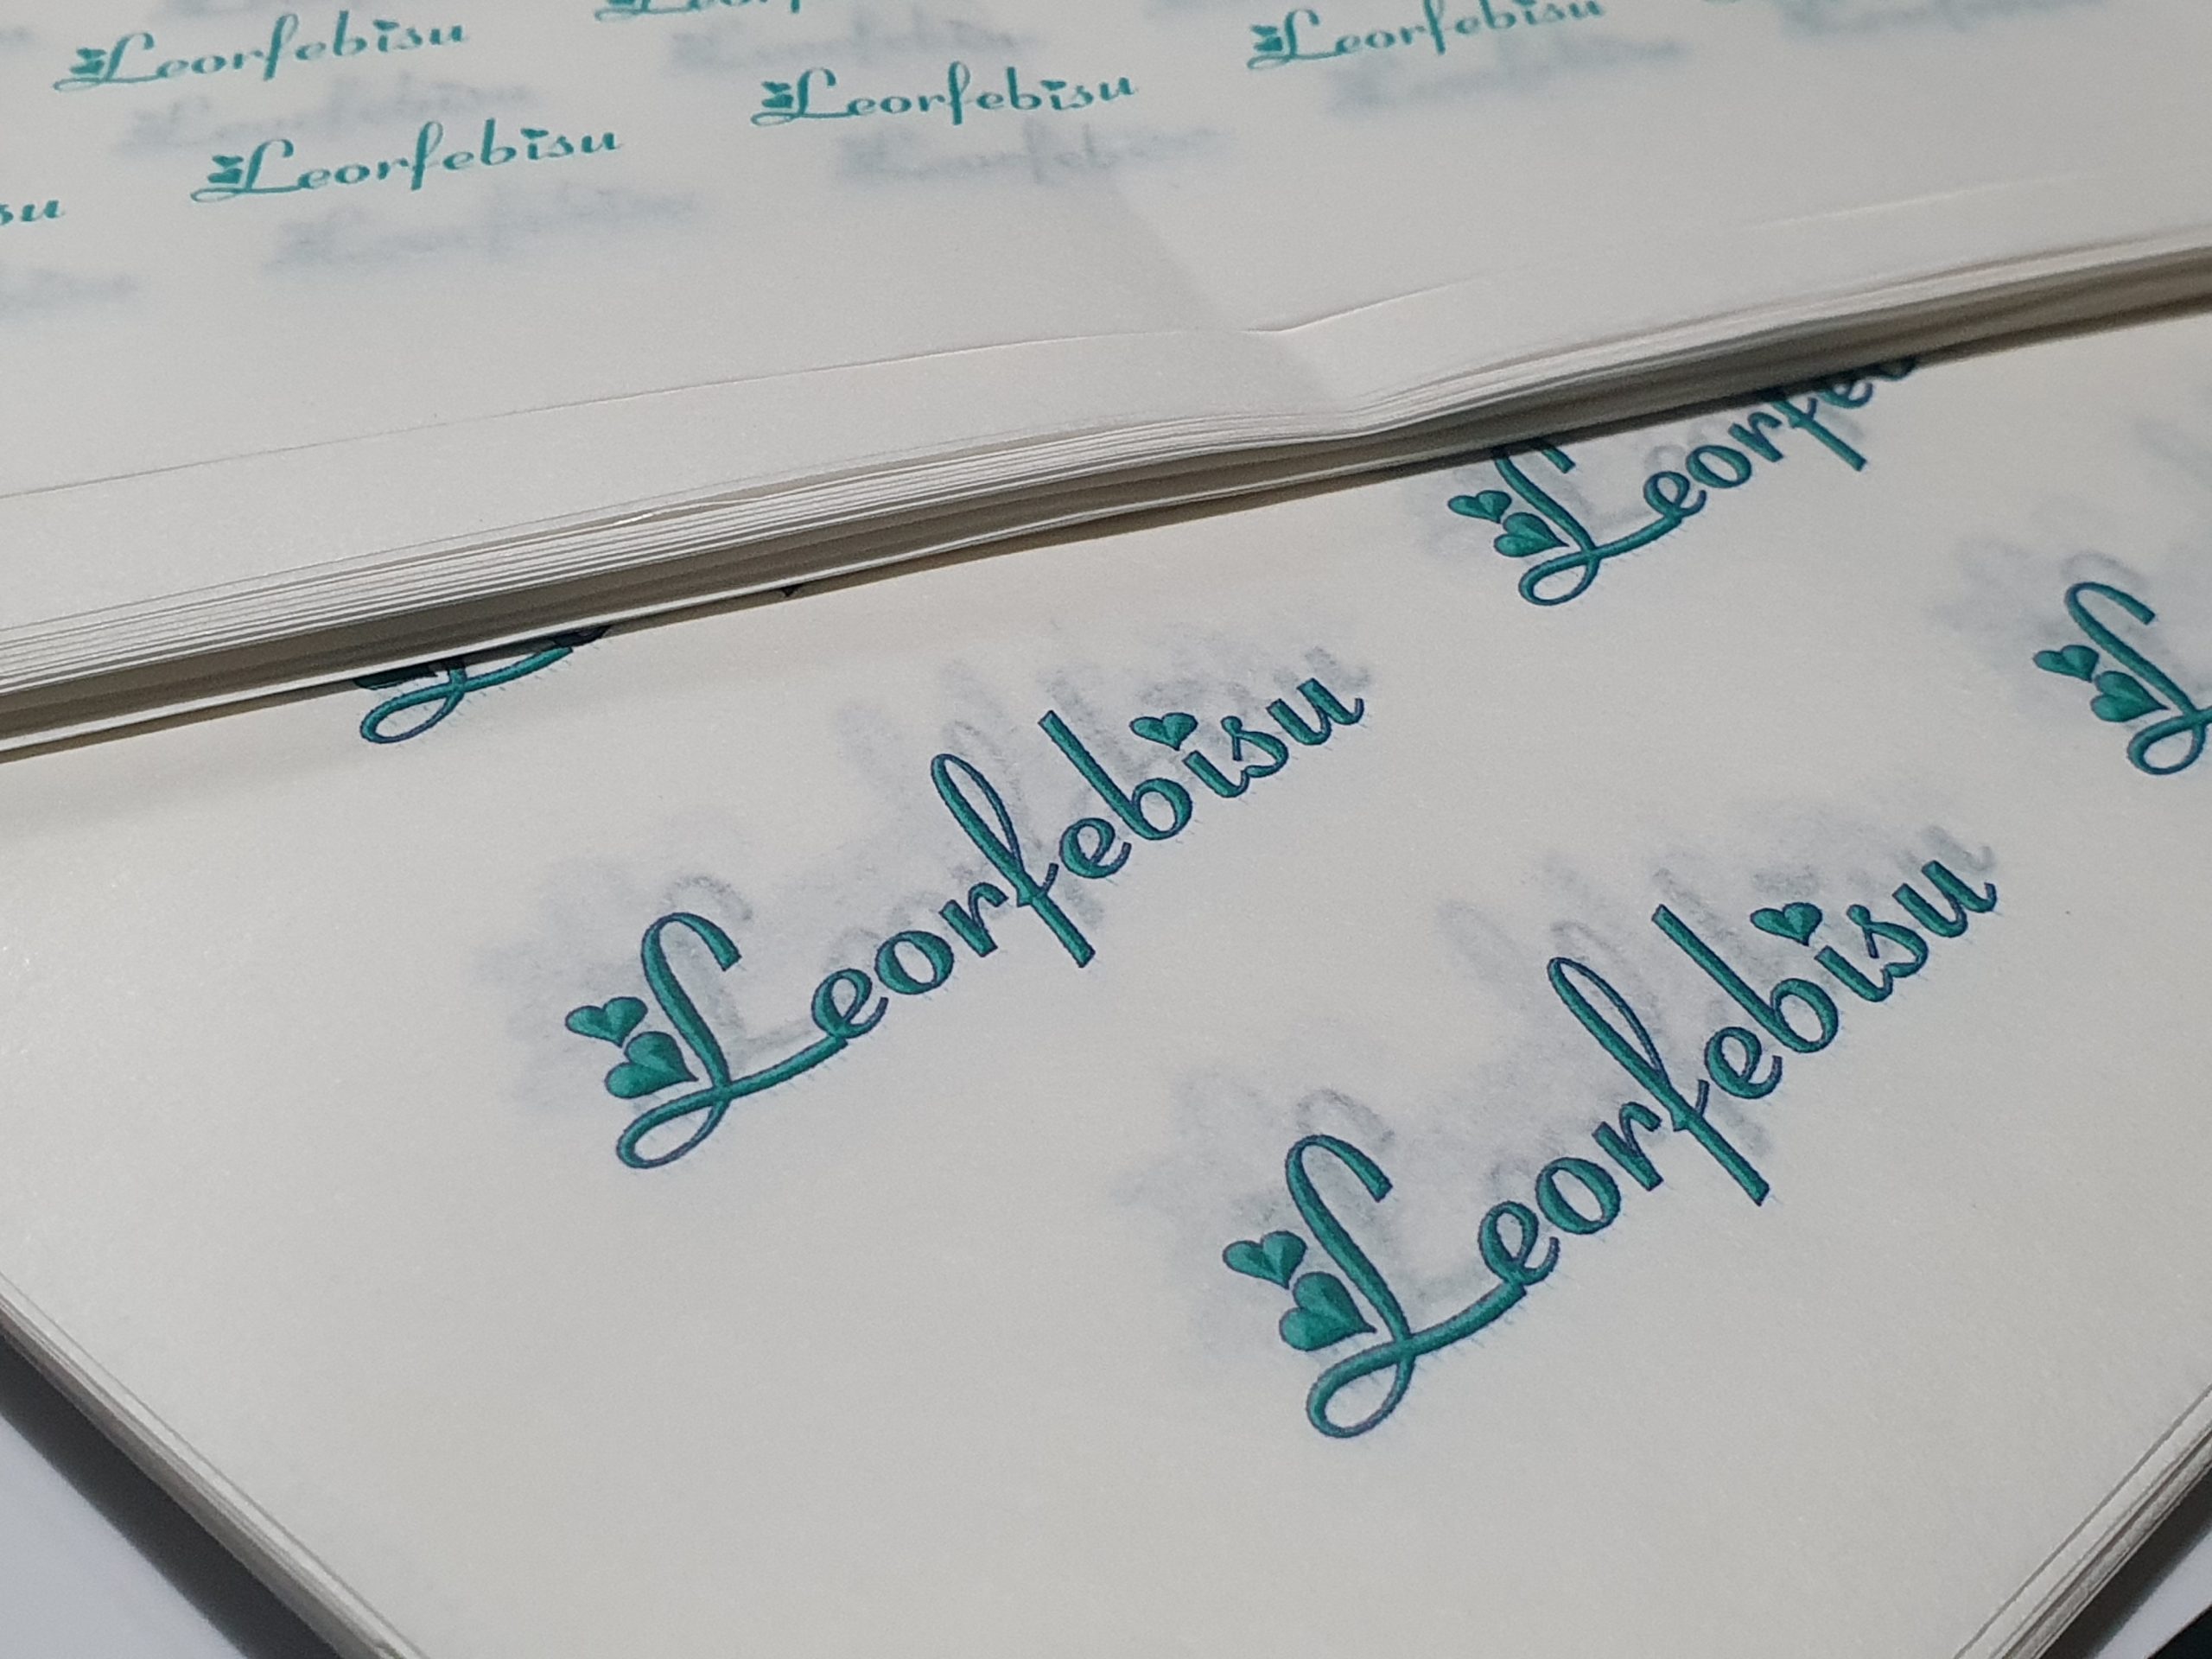 Leorfebisu
Leorfebisu
Leorfebisu
Leorfebisu
su
Leorfe
L
Leorfebisu
Leorfebisu
L